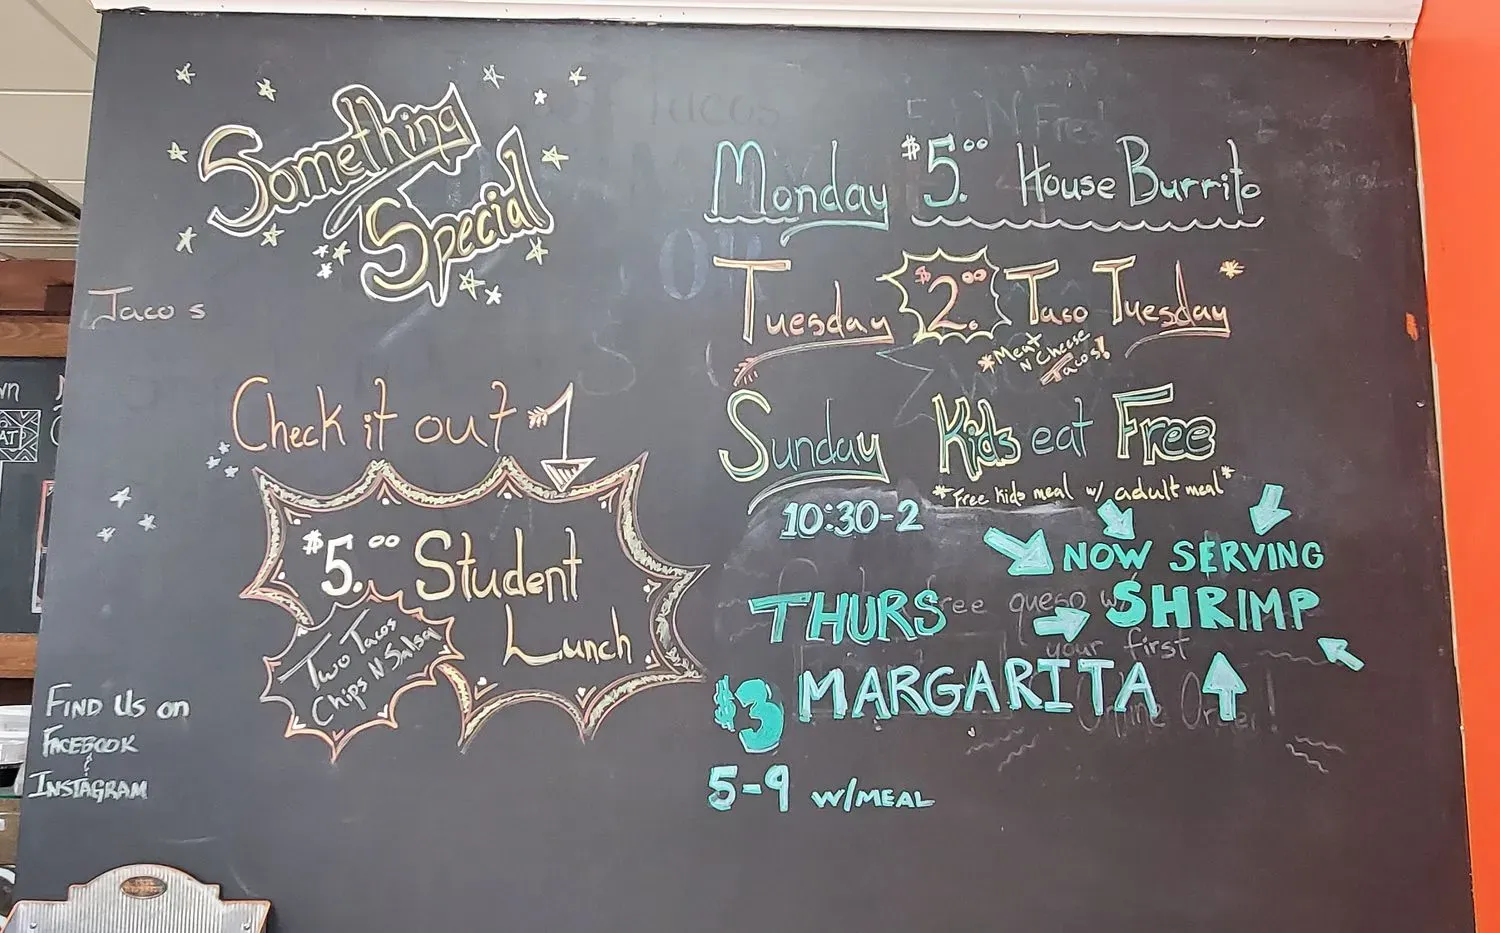 Something
Special
Tacos
Check it out
$5.00 Student
Lunch
Two Tacos
Chips N Salsa
FIND US on
FACEBOOK
&
INSTAGRAM
Tacos
Monday $5.00 House Burrito
Tuesday $2.00 Taco Tuesday*
*Meat
N Cheese
Tacos!
Sunday Kids eat Free
*Free kids meal w/ adult meal*
10:30-2
NOW SERVING
SHRIMP
THURS
free queso w/
your first
Online Order!
$3 MARGARITA
5-9 W/MEAL